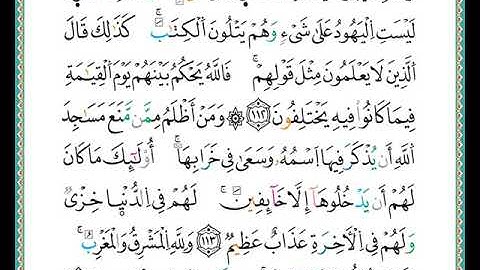 لَيْسَتِ اِ۬لْيَهُودُ عَلَىٰ شَيْءٍ وَهُمْ يَتْلُونَ اَ۬لْكِتَٰبَۖ كَذَٰلِكَ قَالَ
اَ۬لذِينَ لَا يَعْلَمُونَ مِثْلَ قَوْلِهِمْۖ فَاللَّهُ يَحْكُمُ بَيْنَهُمْ يَوْمَ اَ۬لْقِيَٰمَةِ
فِيمَا كَانُوا۟ فِيهِ يَخْتَلِفُونَۖ ١١٢ ۞ وَمَنْ أَظْلَمُ مِمَّن مَّنَعَ مَسَٰجِدَ
اَ۬للَّهِ أَن يُذْكَرَ فِيهَا اَ۪سْمُهُۥ وَسَعَىٰ فِي خَرَابِهَاۖ أُو۟لَٰٓئِكَ مَا كَانَ
لَهُمْ أَن يَدْخُلُوهَآ إِلَّا خَآئِفِينَۖ لَهُمْ فِي اِ۬لدُّنْيَا خِزْيٌ
وَلَهُمْ فِي اِ۬لْأَخِرَةِ عَذَابٌ عَظِيمٌۖ ١١٣ وَلِلهِ اِ۬لْمَشْرِقُ وَالْمَغْرِبُۖ